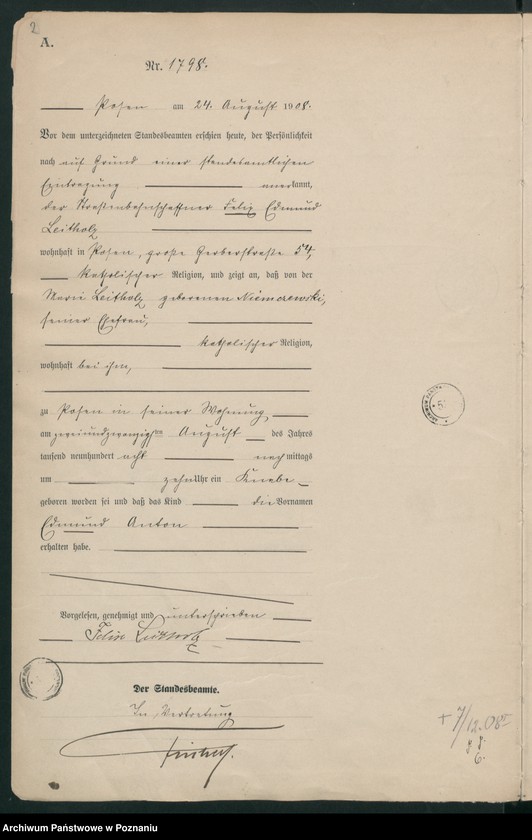 2
A.
Nr. 1798.
Posen am 24. August 1908.
Vor dem unterzeichneten Standesbeamten erschien heute, der Persönlichkeit
nach auf Grund einer standesamtlichen
Eintragung anerkannt,
der Straßenbahnschaffner Felix Edmund
Leitholz
wohnhaft in Posen, große Gerberstraße 54,
katholischer Religion, und zeigte an, daß von der
Marie Leitholz geborenen Niemczewski,
seiner Ehefrau,
katholischer Religion,
wohnhaft bei ihm,
zu Posen in seiner Wohnung
am zweiundzwanzigsten August des Jahres
tausend neunhundert acht nachmittags
um zehn Uhr ein Knabe
geboren worden sei und daß das Kind die Vornamen
Edmund Anton
erhalten habe.
Vorgelesen, genehmigt und unterschrieben
Felix Leitholz
Der Standesbeamte.
In Vertretung
+ 7/12.08
6.
Archiwum Państwowe w Poznaniu